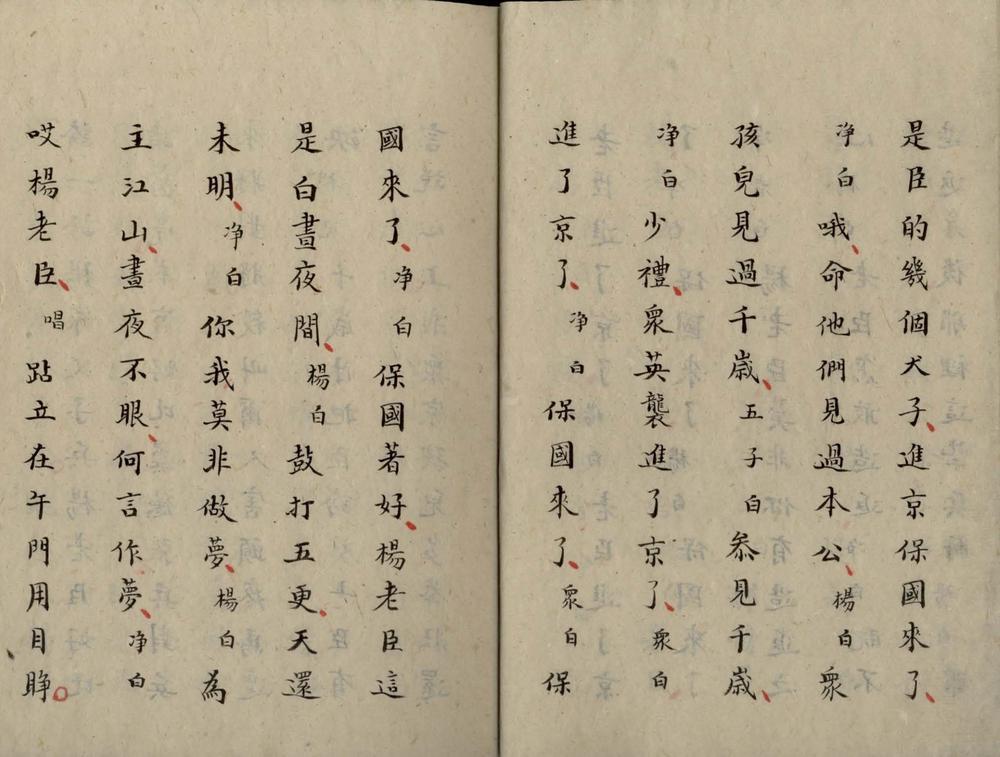 是臣的幾個犬子、進京保國來了、
净白哦、命他們見過本公、楊白衆
孩兒見過千歲、五子白叅見千歲、
净白少禮、衆英襲進了京了、衆白
進了京了、净白保國來了、衆白保
國來了、净白保國著好、楊老臣這
是白晝夜間、楊白鼓打五更、天還
未明、净白你我莫非做夢、楊白為
主江山、晝夜不眼、何言作夢、净白
哎楊老臣、唱跕立在午門用目睁。